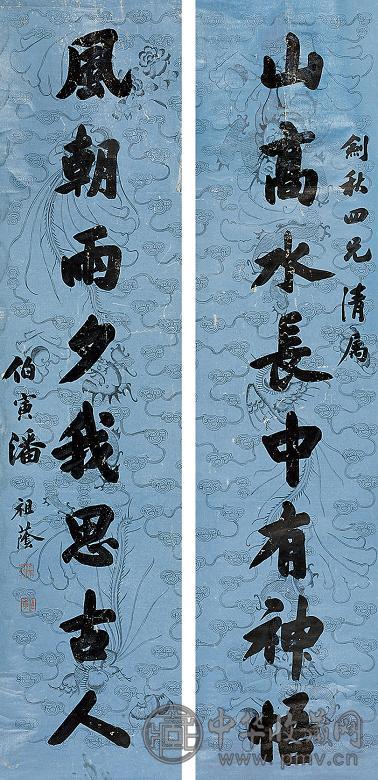 劍秋四兄清属
山高水長中有神悟
風朝雨夕我思古人
伯寅潘祖蔭
中华收藏网
pmfv.net